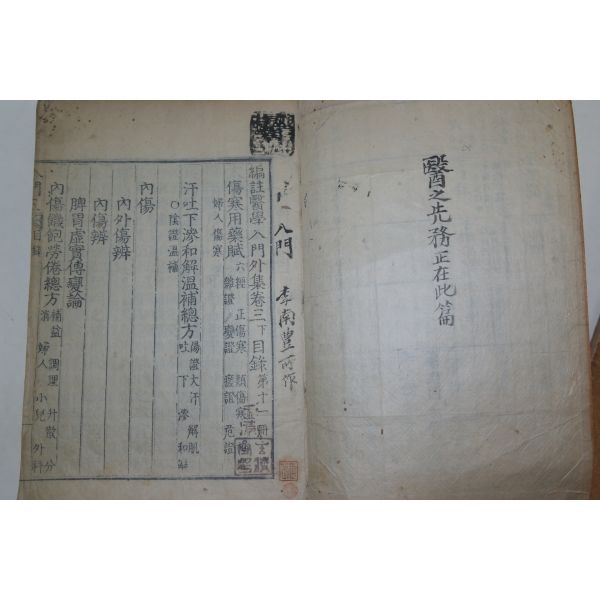 醫之先務正在此篇
入門 李南豊所作
編註醫學入門外集卷三下目錄 第十一冊
傷寒用藥賦 六經正傷寒 類傷寒 雜證 變證 瘥證 危證
婦人傷寒
汗吐下滲和解溫補總方 傷證大汗 解肌 吐 下 滲 和解
○陰證溫補
內傷
內外傷辨
內傷辨
脾胃虛實傳變論
內傷飢飽勞倦總方 補益 調理 升散 分 婦人 小兒 外科